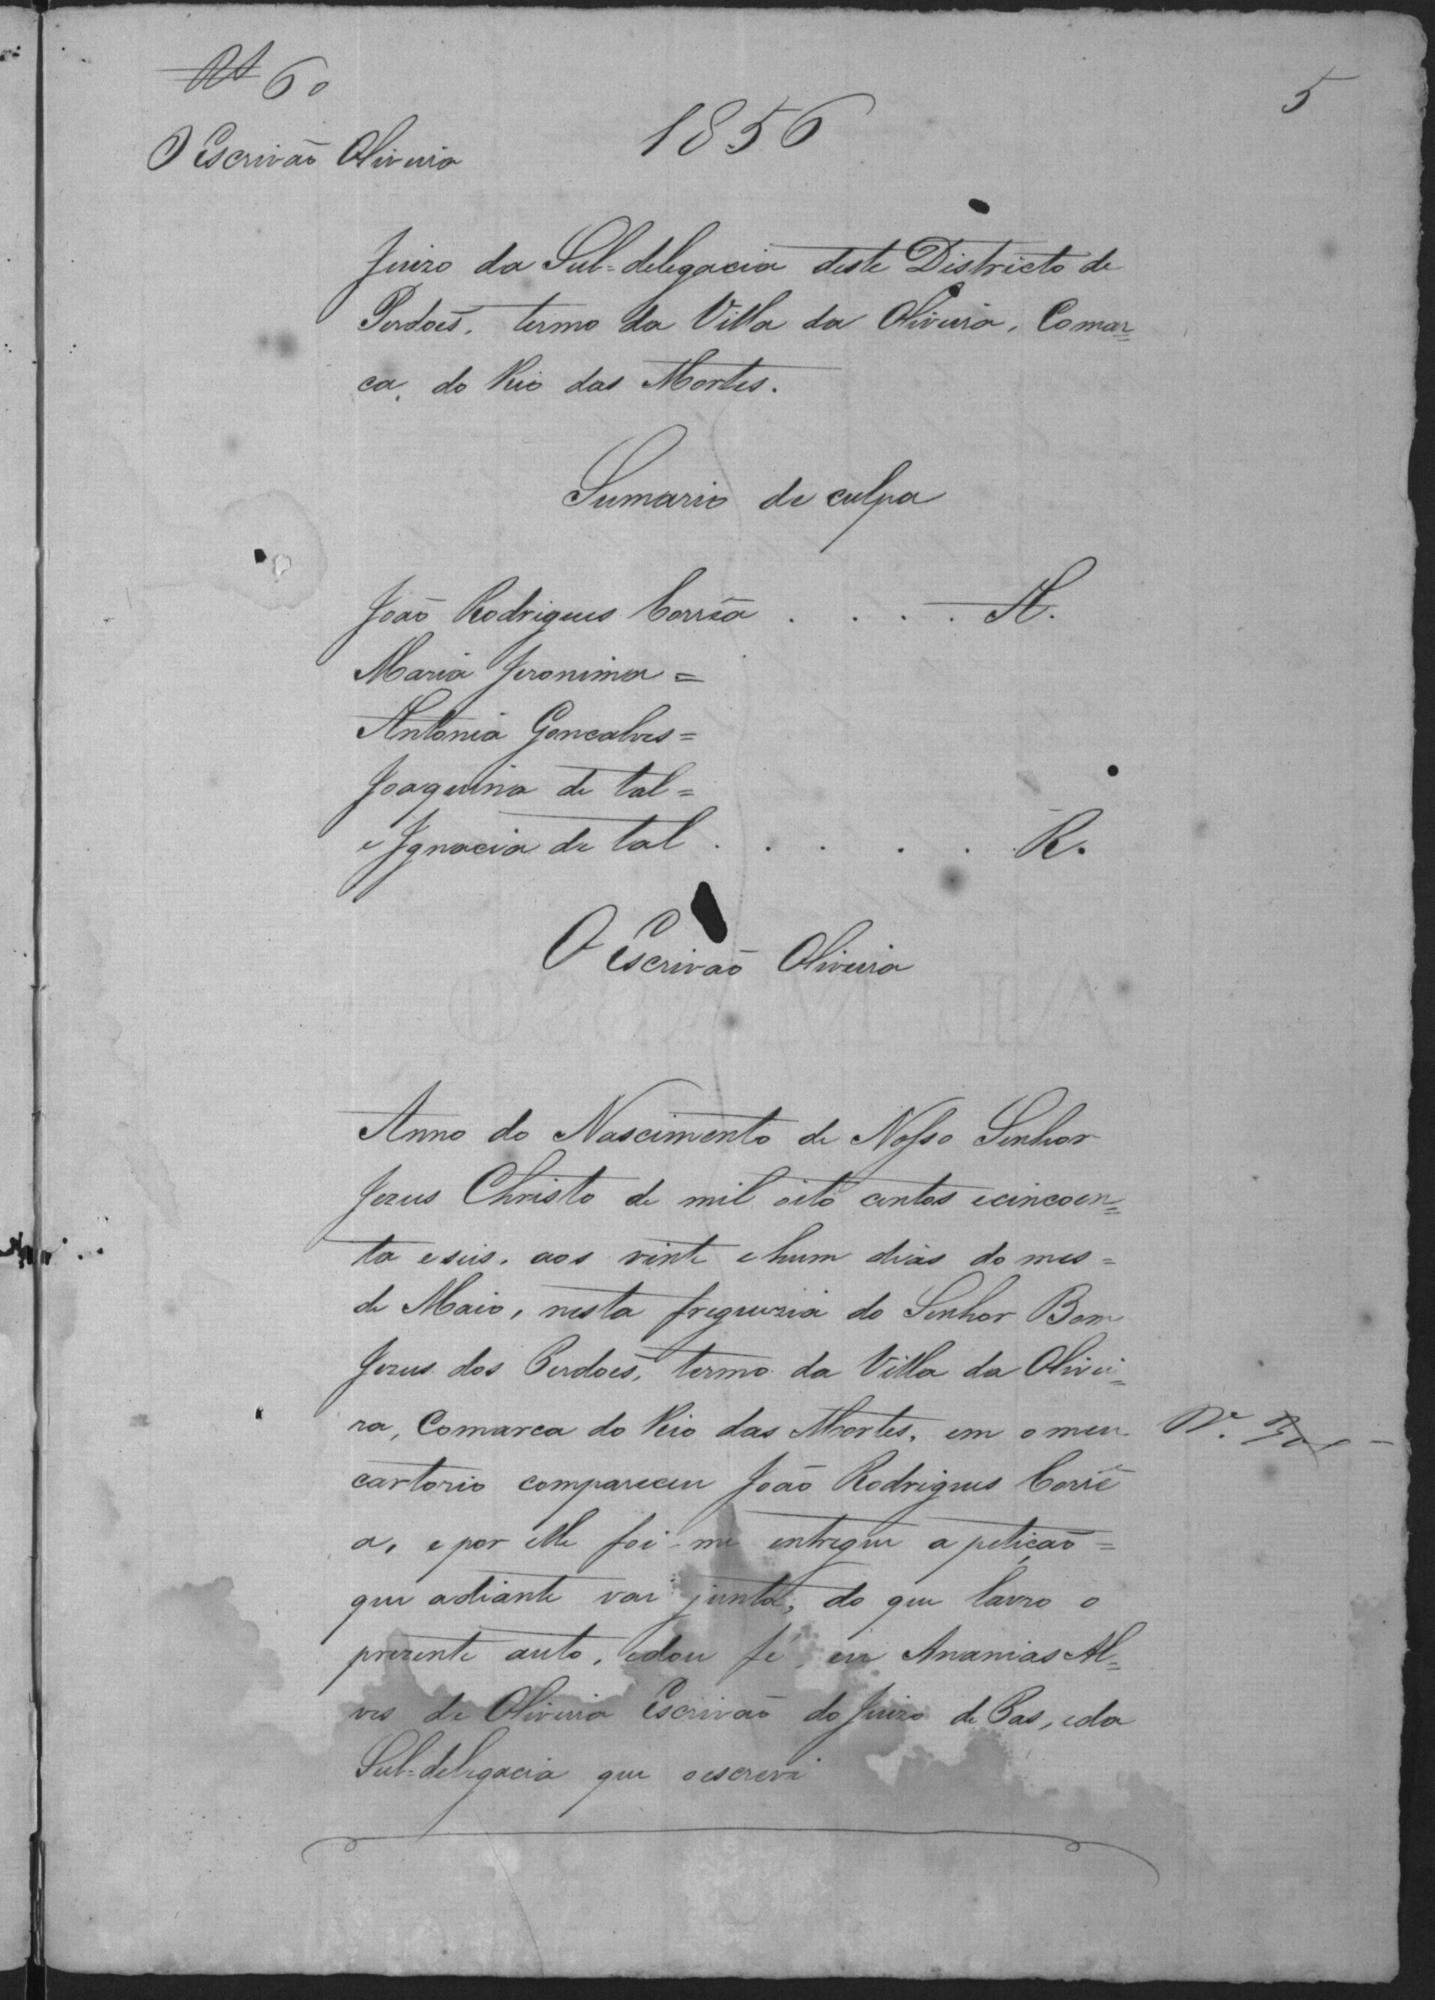 60
5
1856
O Escrivão Oliveira
Juizo da Sub=delegacia deste Districto de
Perdoẽs, termo da Villa da Oliveira, Comar=
ca, do Rio das Mortes.
Sumario de culpa
João Rodrigues Corrêa . . . . A.
Maria Jeronima =
Antonia Goncalves =
Joaquina de tal =
e Ignacia de tal . . . . . R.
O Escrivão Oliveira
Anno do Nascimento de Nosso Senhor
Jezus Christo de mil oito centos e cincoen=
ta e seis, aos vinte e hum dias do mes =
de Maio, nesta freguezia do Senhor Bom
Jezus dos Perdoẽs, termo da Villa da Olivei=
ra, Comarca do Rio das Mortes, em o meu
cartorio compareceu João Rodrigues Corrê
a, e por elle foi-me entregue a petição =
que adiante vai junta, do que lavro o
prezente auto, e dou fé, eu Ananias Al=
ves de Oliveira Escrivão do Juizo de Pas, e da
Sub=delegacia que o escrevi